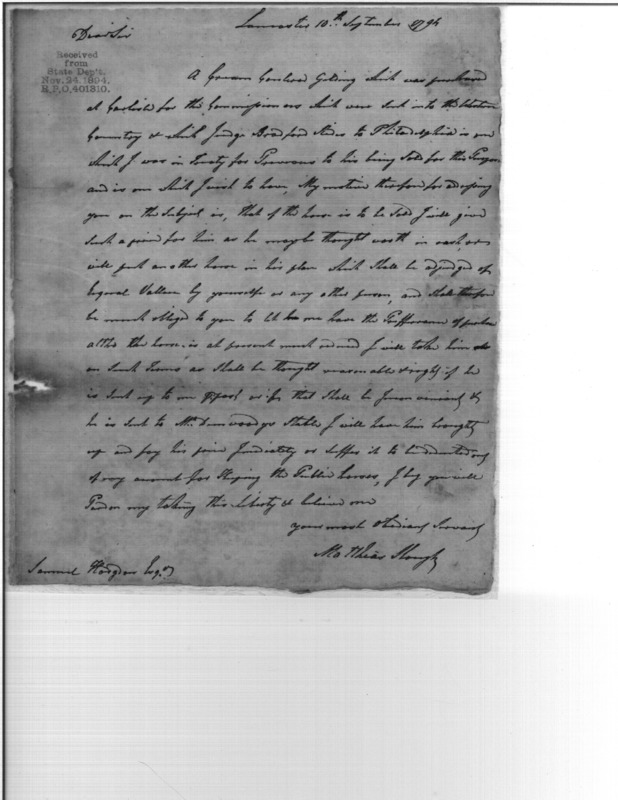 Lancaster 10th September 1794
Dear Sir
Received
from
State Dep't.
Nov. 24. 1894.
R.P.O. 401310.
A Coloured Gelding which was purchased
at Carlisle for the Commissioners which were sent into the Western
Country & which Judge Bradford rides to Philadelphia is one
which I was in Treaty for Previous to his being sold for this Purpose
and is one which I wish to have, My motive therefore for addressing
you on the Subject is, that if the horse is to be sold I will give
such a price for him as he may be thought worth in cash, or
will put another horse in his place which shall be adjudged of
by yourself or any other person, and shall therefore
be much obliged to you to let me have the Preference of purchase
altho the horse is at present much reduced I will take him
on such Terms as shall be thought reasonable & right if he
is sent up to me or if that shall be & 
he is sent to Mr. Dunwoodys Stable I will have him brought
up and pay his price Immediately or suffer it to be deducted out
of my account for Keeping the Public horses, I beg you will
Pardon my taking this Liberty & believe me
your most Obedient Servant
Mathias Slough
Samuel Hodgdon Esqr.